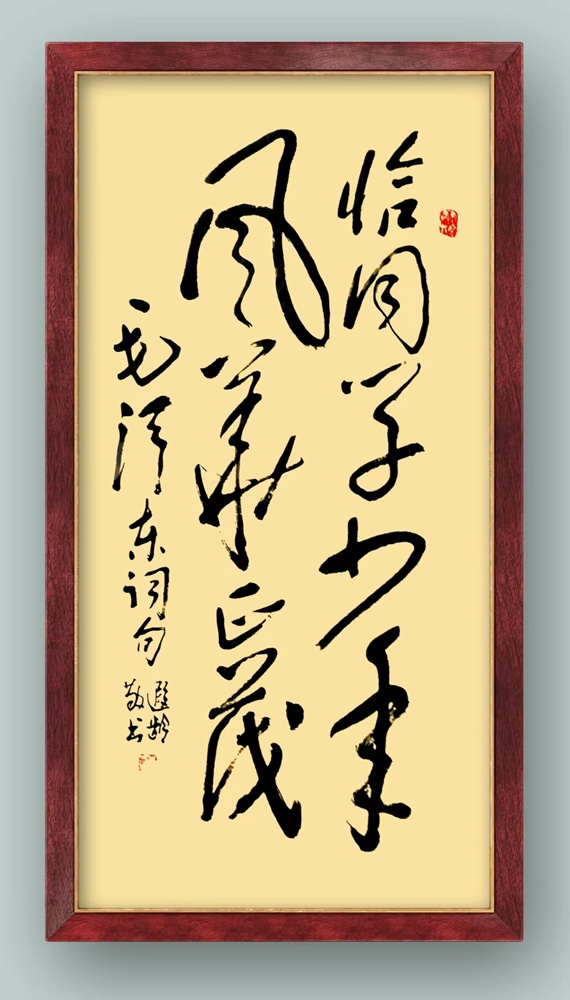 恰同学少年
风华正茂
毛泽东词句
遐龄
敬书